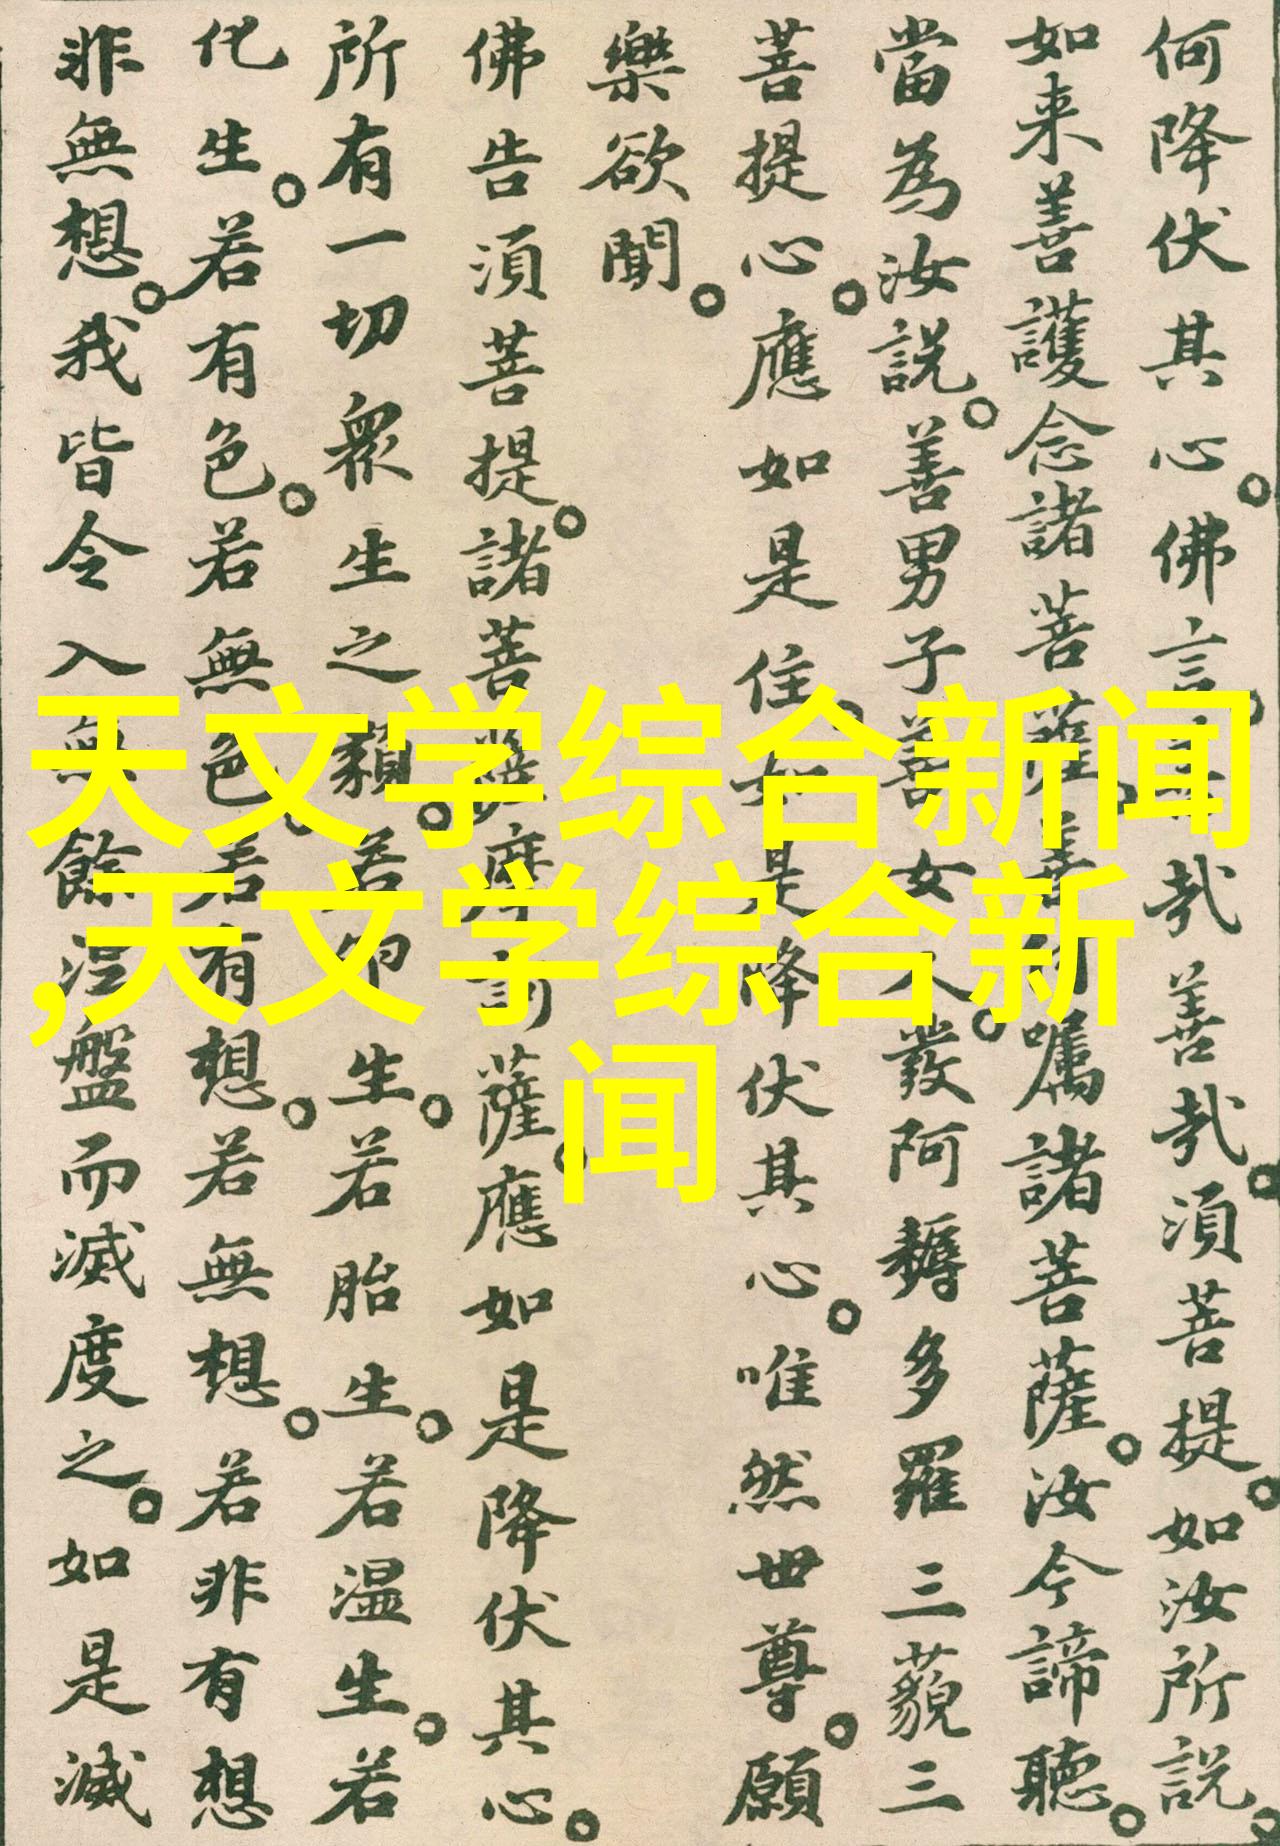 何降伏其心佛言哉善哉須菩提如汝所説
如来善護念諸菩薩善付囑諸菩薩汝今諦聽
當為汝説善男子善女人發阿耨多羅三藐三
菩提心應如是住如是降伏其心唯然世尊願
樂欲聞
佛告須菩提諸菩薩摩訶薩應如是降伏其心
所有一切眾生之類若卵生若胎生若温生若
化生若有色若無色若有想若無想若非有想
非無想我皆令入無餘涅盤而滅度之如是滅
天文学综合新闻
,天文学综合新
闻